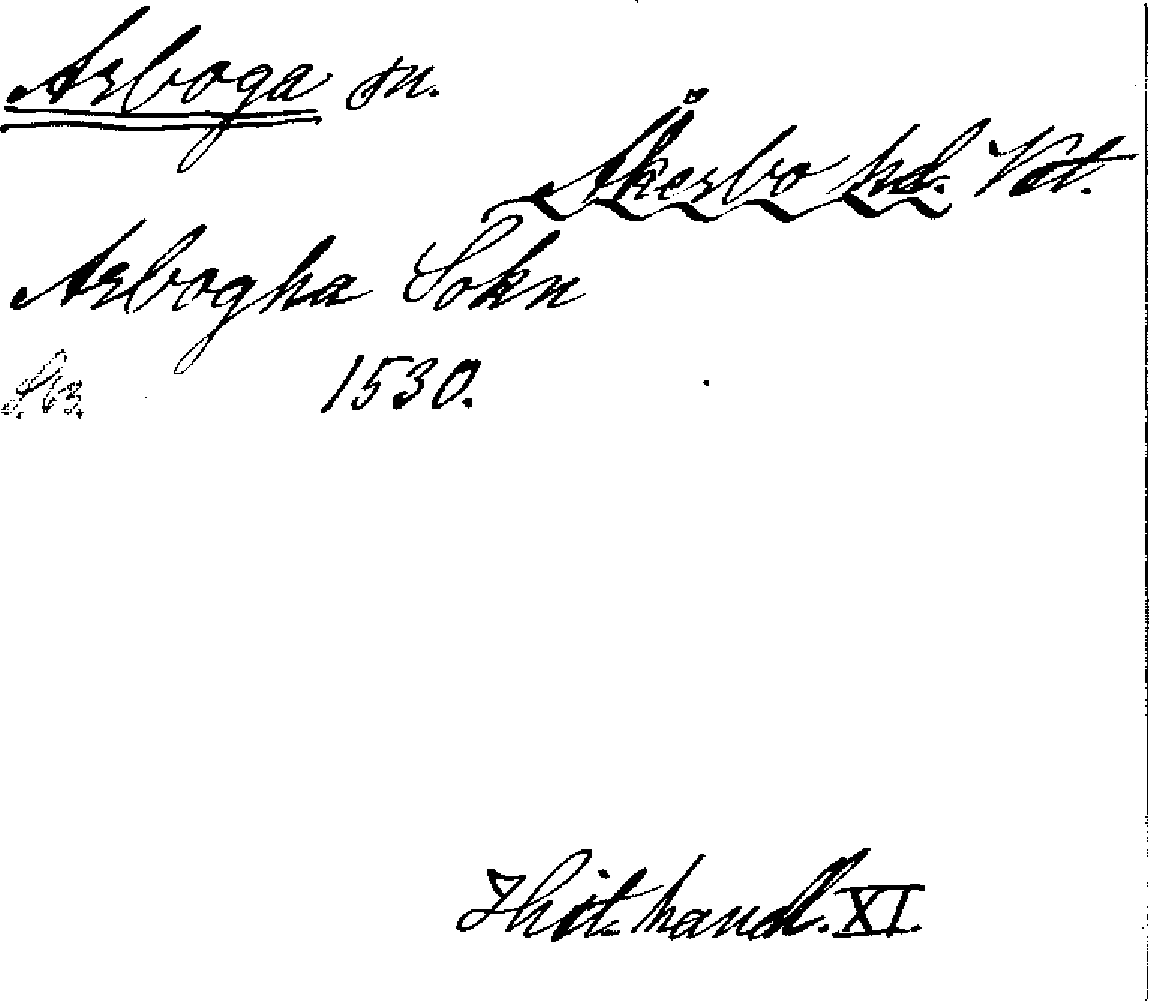 Arboga sn.
Åkerbo hd. Vstm.
Arbogha Sokn
S. 63. 1530.
Hist. handl. XI.